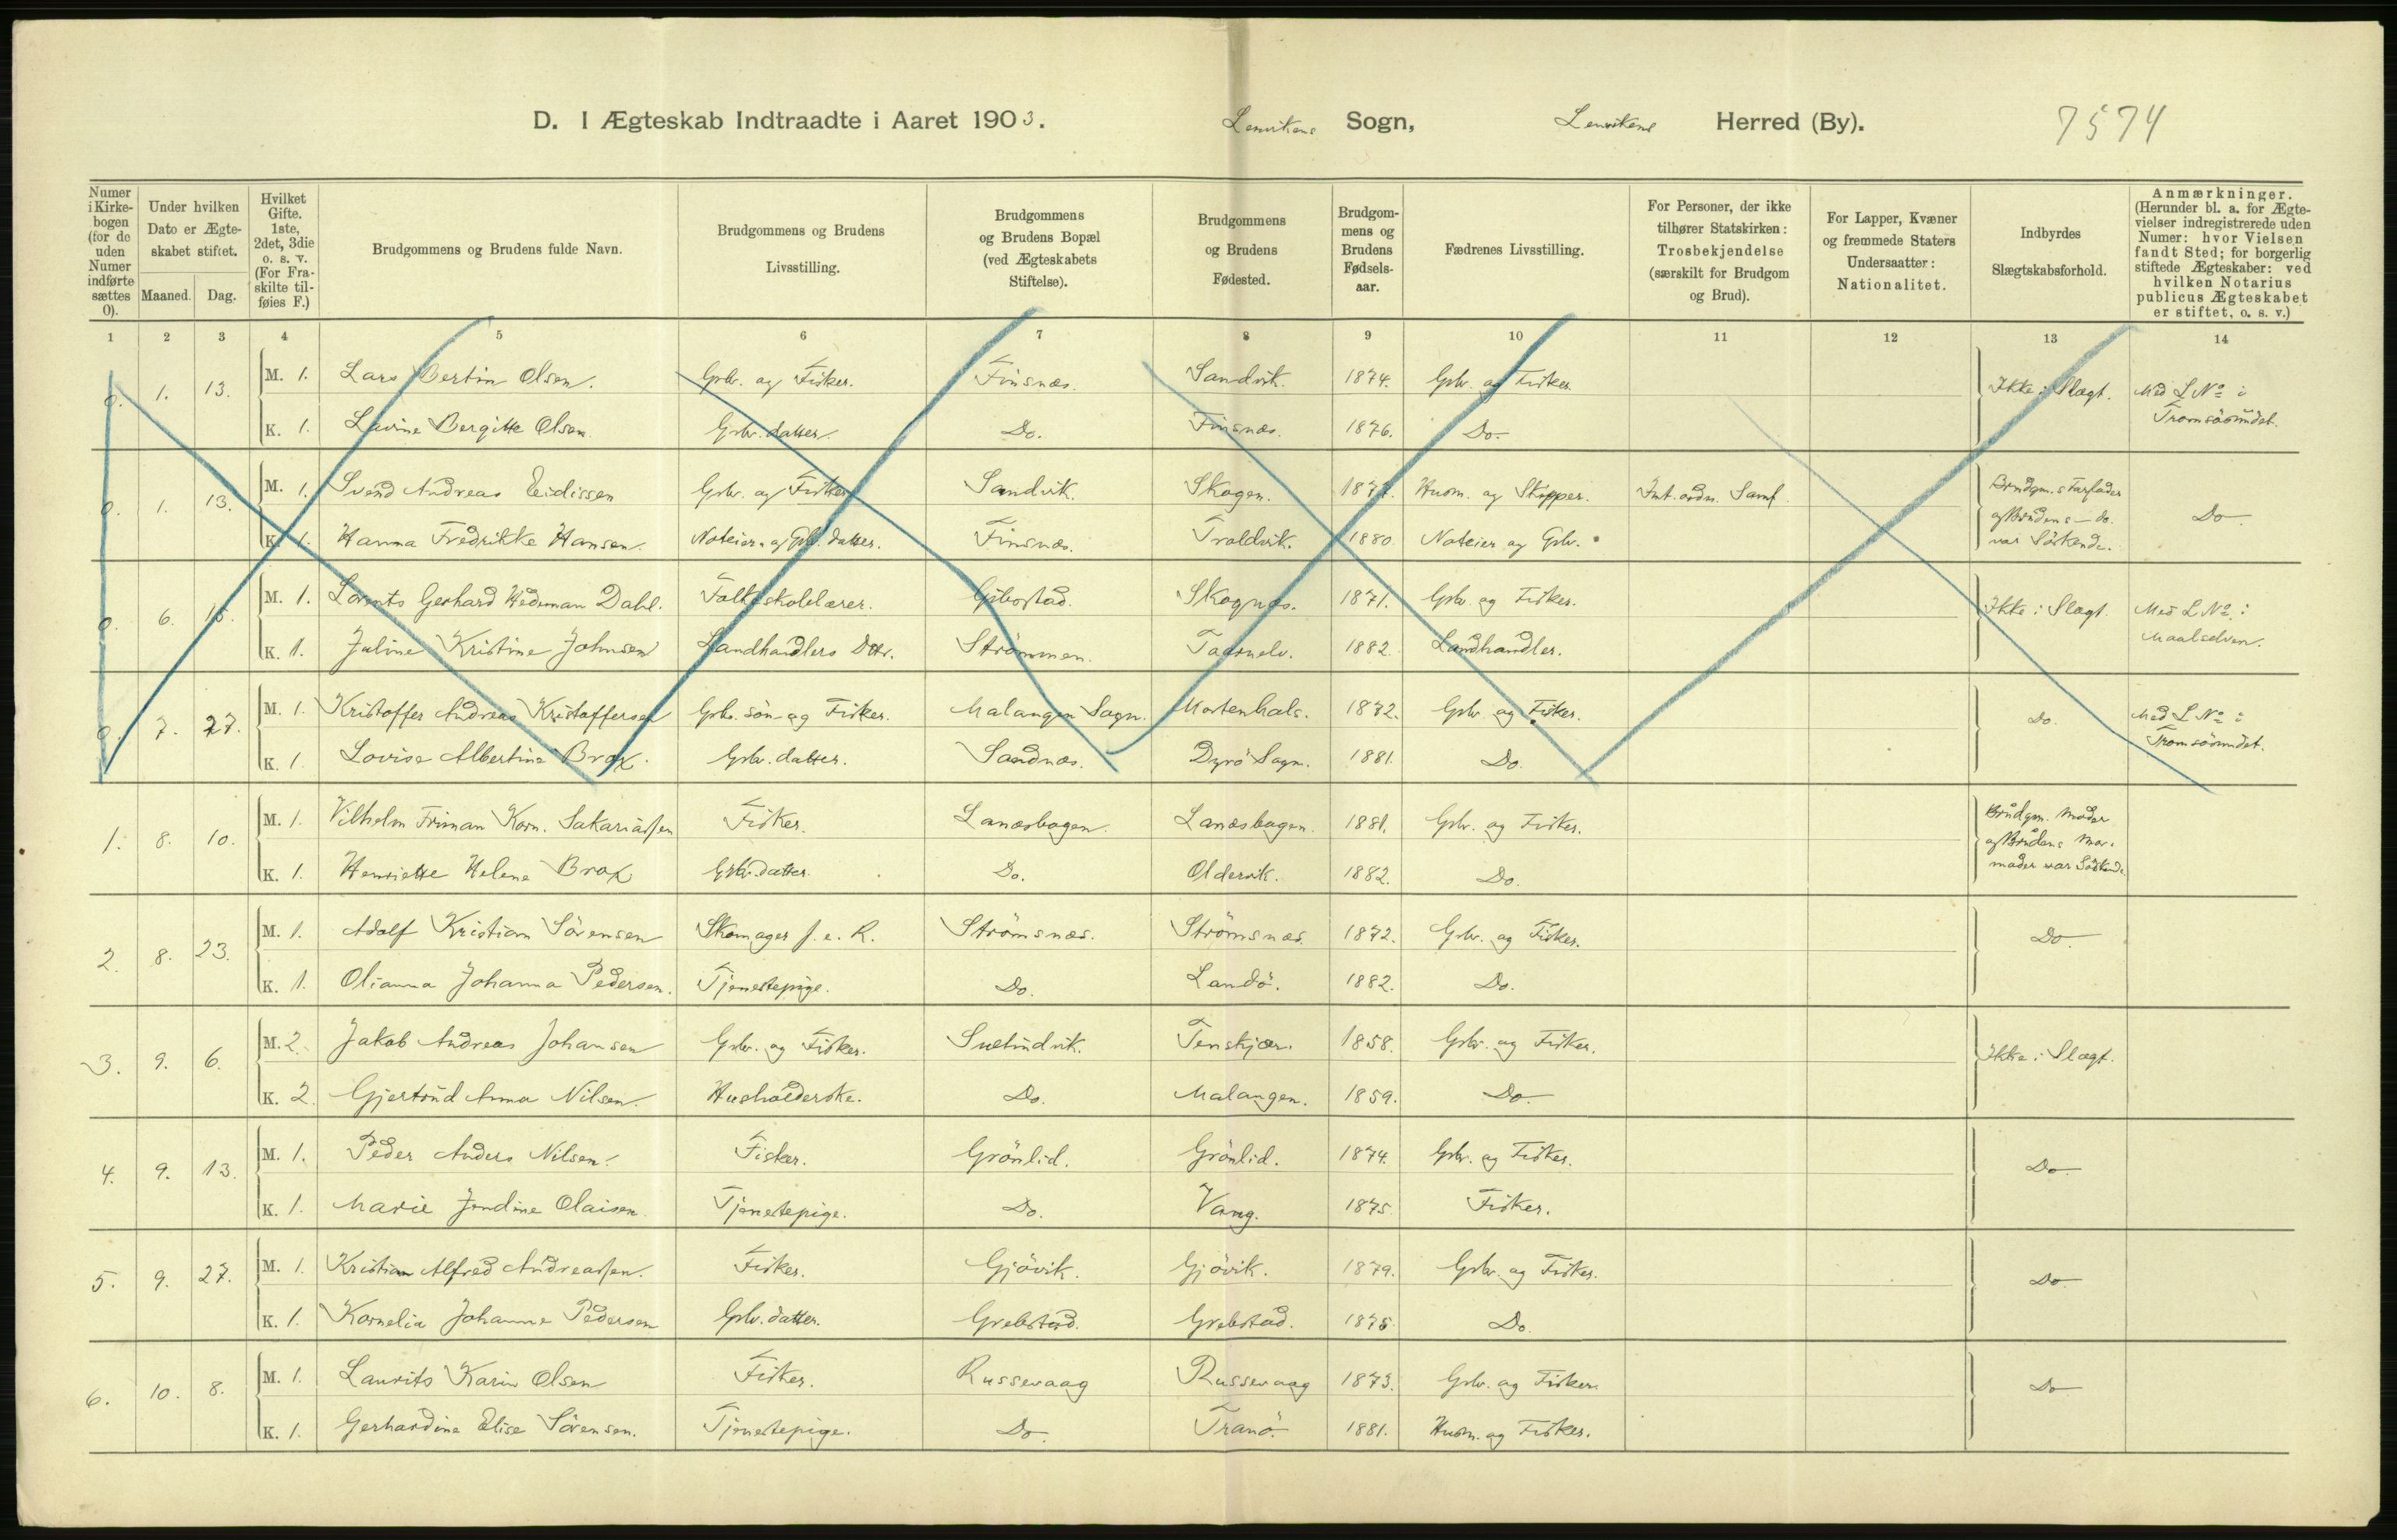 D. I Ægteskab Indtraadte i Aaret 1903. Lenvikens Sogn, Lenvikens Herred (By). 7574
Numer i Kirkebogen (for de uden Numer indførte sættes 0). Under hvilken Dato er Ægteskabet stiftet. Maaned. Dag. Hvilket Gifte. 1ste, 2det, 3die o. s. v. (For Fraskilte tilføies F.) Brudgommens og Brudens fulde Navn. Brudgommens og Brudens Livsstilling. Brudgommens og Brudens Bopæl (ved Ægteskabets Stiftelse). Brudgommens og Brudens Fødested. Brudgommens og Brudens Fødselsaar. Fædrenes Livsstilling. For Personer, der ikke tilhører Statskirken: Trosbekjendelse (særskilt for Brudgom og Brud). For Lapper, Kvæner og fremmede Staters Undersaatter: Nationalitet. Indbyrdes Slægtskabsforhold. Anmærkninger. (Herunder bl. a. for Ægtevielser indregistrerede uden Numer: hvor Vielsen fandt Sted; for borgerlig stiftede Ægteskaber: ved hvilken Notarius publicus Ægteskabet er stiftet, o. s. v.)
1 2 3 4 5 6 7 8 9 10 11 12 13 14
0. 1. 13. M. 1. Lars Bertin Olsen. Gbr. og Fisker. Finsnæs. Sandvik. 1874. Gbr. og Fisker Ikke i Slægt. Med L No i Tromsösundet.
K. 1. Lavine Bergitte Olsen Gbr. datter. Do. Finsnæs. 1876. Do.
0. 1. 13. M. 1. Svend Andreas Eidissen Gbr. og Fisker Sandvik. Skogen. 1877. Husm. og Skipper. Int. ordn. Samf. Brudgm.s Farfader og Brudens - do. var Söskende. Do.
K. 1. Hanna Fredrikke Hansen. Noteier- og Gbr. datter. Finsnæs. Troldvik. 1880. Noteier og Gbr.
0. 6. 15. M. 1. Lorents Gerhard Wedeman Dahl. Folkeskolelærer. Gibostad. Skognæs. 1871. Gbr. og Fisker. Ikke i Slægt. Med L No i Maalselven.
K. 1. Juline Kristine Johnsen Landhandlers Dtr. Strömmen. Taarnelv. 1882. Landhandler.
0. 7. 27. M. 1. Kristoffer Andreas Kristoffersen Gbr. sön og Fisker. Malangen Sogn. Mortenhals. 1872. Gbr. og Fisker. Do. Med L No i Tromsösundet.
K. 1. Lovise Albertine Brox. Gbr. datter. Sandnæs. Dyrö Sogn. 1881. Do.
1. 8. 10. M. 1. Vilhelm Friman Korn. Sakariassen Fisker. Lanæsbogen. Lanæsbogen. 1881. Gbr. og Fisker. Brudgm. Moder og Brudens Mormoder var Söskende
K. 1. Henriette Helene Brox Gbr. datter. Do. Oldervik. 1882. Do.
2. 8. 23. M. 1. Adolf Kristian Sörensen Skomager f. e. R. Strömsnæs. Strömsnæs. 1872. Gbr. og Fisker. Do.
K. 1. Olianna Johanna Pedersen. Tjenestepige. Do. Landö. 1882. Do.
3. 9. 6. M. 2. Jakob Andreas Johansen Gbr. og Fisker. Sultindvik. Tenskjær. 1858. Gbr. og Fisker. Ikke i Slægt.
K. 2. Gjertrud Anna Nilsen. Husholderske. Do. Malangen. 1859. Do.
4. 9. 13. M. 1. Peder Anders Nilsen. Fisker. Grönlid. Grönlid. 1874. Gbr. og Fisker. Do.
K. 1. Marie Jendine Olaisen. Tjenestepige. Do. Vang. 1875. Fisker.
5. 9. 27. M. 1. Kristian Alfred Andreassen. Fisker. Gjövik. Gjövik. 1879. Gbr. og Fisker. Do.
K. 1. Kornelia Johanne Pedersen Gbr. datter. Grebstad. Grebstad. 1875. Do.
6. 10. 8. M. 1. Laurits Karin Olsen Fisker. Russevaag Russevaag 1873. Gbr. og Fisker. Do
K. 1. Gerhardine Elise Sörensen. Tjenestepige. Do. Tranö. 1881. Husm. og Fisker.